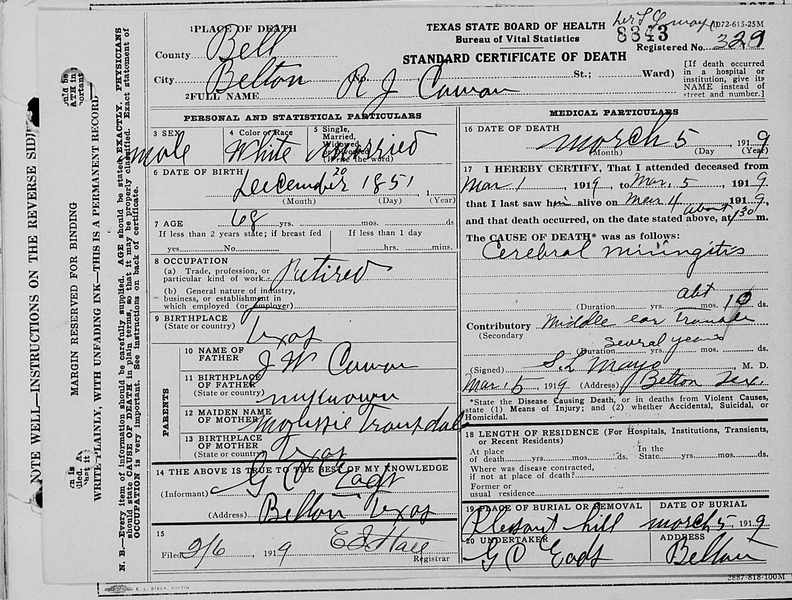 1PLACE OF DEATH
TEXAS STATE BOARD OF HEALTH
D72-615-25M
Bureau of Vital Statistics
8343
Registered No. 329
STANDARD CERTIFICATE OF DEATH
County Bell
City Belton
St.; Ward)
[If death occurred in a hospital or institution, give its NAME instead of street and number.]
2FULL NAME R J Cowan
PERSONAL AND STATISTICAL PARTICULARS
3 SEX male
4 Color or Race White
5 Single, Married, Widowed, or Divorced (Write the word) Married
6 DATE OF BIRTH
December 20 1851, 1
(Month) (Day) (Year)
7 AGE 68 yrs. mos. ds
If less than 2 years state; if breast fed
If less than 1 day
yes No
hrs. mins.
8 OCCUPATION
(a) Trade, profession, or particular kind of work Retired
(b) General nature of industry, business, or establishment in which employed (or employer)
9 BIRTHPLACE
(State or country) Texas
PARENTS
10 NAME OF FATHER J W Cowan
11 BIRTHPLACE OF FATHER (State or country) unknown
12 MAIDEN NAME OF MOTHER
13 BIRTHPLACE OF MOTHER (State or country) Texas
14 THE ABOVE IS TRUE TO THE BEST OF MY KNOWLEDGE
(Informant) G D
(Address) Belton Texas
15
Filed 3/6, 1919
Registrar
MEDICAL PARTICULARS
16 DATE OF DEATH
March 5 1919
(Month) (Day (Year)
17 I HEREBY CERTIFY, That I attended deceased from
Mar 1, 1919, to Mar. 5, 1919
that I last saw him alive on Mar 4, 1919
and that death occurred, on the date stated above, at about 430 m.
The CAUSE OF DEATH* was as follows:
Cerebral miningitis
abt 10
(Duration yrs. mos. ds.
Contributory Middle ear trouble
(Secondary
Several years
(Duration yrs. mos. ds.
(Signed) S L Mayo M. D.
Mar. 5, 1919 (Address) Belton Tex.
*State the Disease Causing Death, or in deaths from Violent Causes, state (1) Means of Injury; and (2) whether Accidental, Suicidal, or Homicidal.
18 LENGTH OF RESIDENCE (For Hospitals, Institutions, Transients, or Recent Residents)
At place of death yrs. mos. ds.
In the State yrs. mos. ds.
Where was disease contracted, if not at place of death?
Former or usual residence
19 PLACE OF BURIAL OR REMOVAL
Pleasant hill
DATE OF BURIAL
March 5 1919
20 UNDERTAKER
G D Eads
ADDRESS
Belton
2887-818-100M
NOTE WELL—INSTRUCTIONS ON THE REVERSE SIDE
MARGIN RESERVED FOR BINDING
WRITE PLAINLY, WITH UNFADING INK—THIS IS A PERMANENT RECORD
N. B.—Every item of information should be carefully supplied. AGE should be stated EXACTLY. PHYSICIANS
should state CAUSE OF DEATH in plain terms, so that it may be properly classified. Exact statement of
OCCUPATION is very important. See instructions on back of certificate.